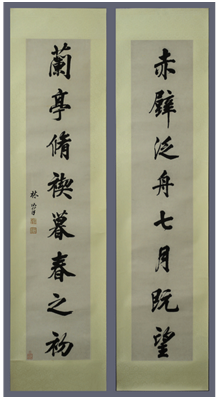 赤壁泛舟七月既望
蘭亭脩禊暮春之初